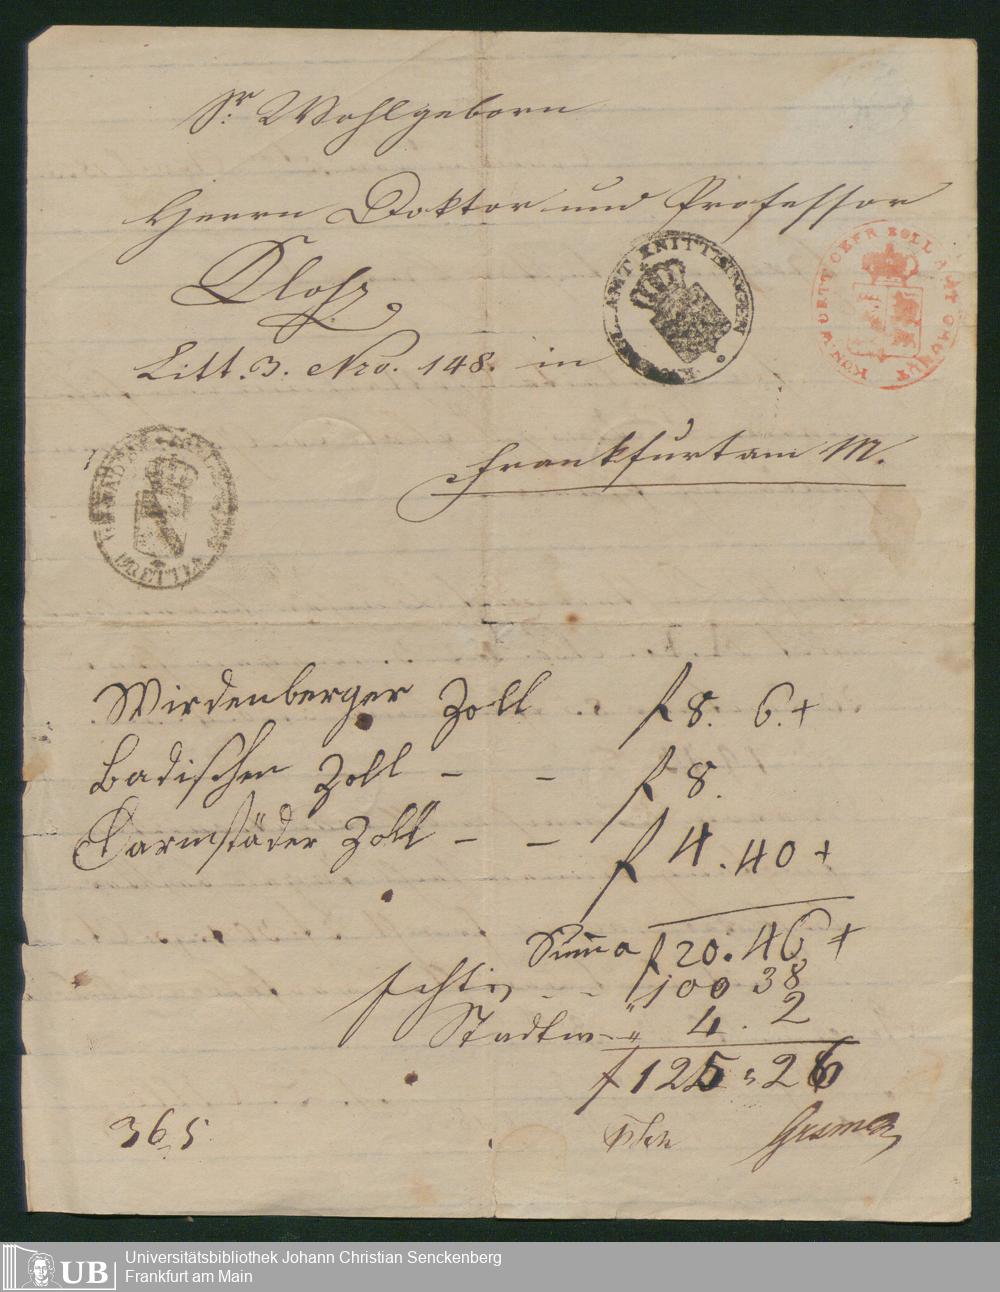 Sr. Wohlgeborn
Herrn Doktor und Professor
Cloß
Litt. 3. Nro. 148. in
Frankfurt am M.
AMT KNITTLINGEN
KÖN WÜRTT OBER ZOLL AMT
BRETTEN
Wirdenberger Zoll f 8. 6. +
Badischen Zoll - - f 8.
Darmstäder Zoll - - f 4. 40 +
Summa f 20. 46 +
100 38
" 4. 2
f 125 " 26
365
UB
Universitätsbibliothek Johann Christian Senckenberg
Frankfurt am Main